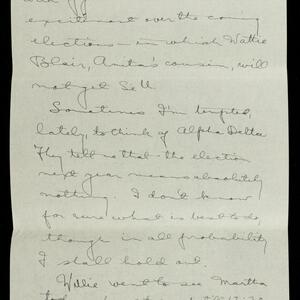 excitement over the coming
elections — in which Wattie
Blair, Anita's cousin, will
not get Sett
Sometimes I'm tempted,
lately, to think of Alpha Delta
They tell me that the election
next year means absolutely
nothing. I don't know
for sure what is best to do,
though in all probability
I shall hold out.
Willie went to see Martha